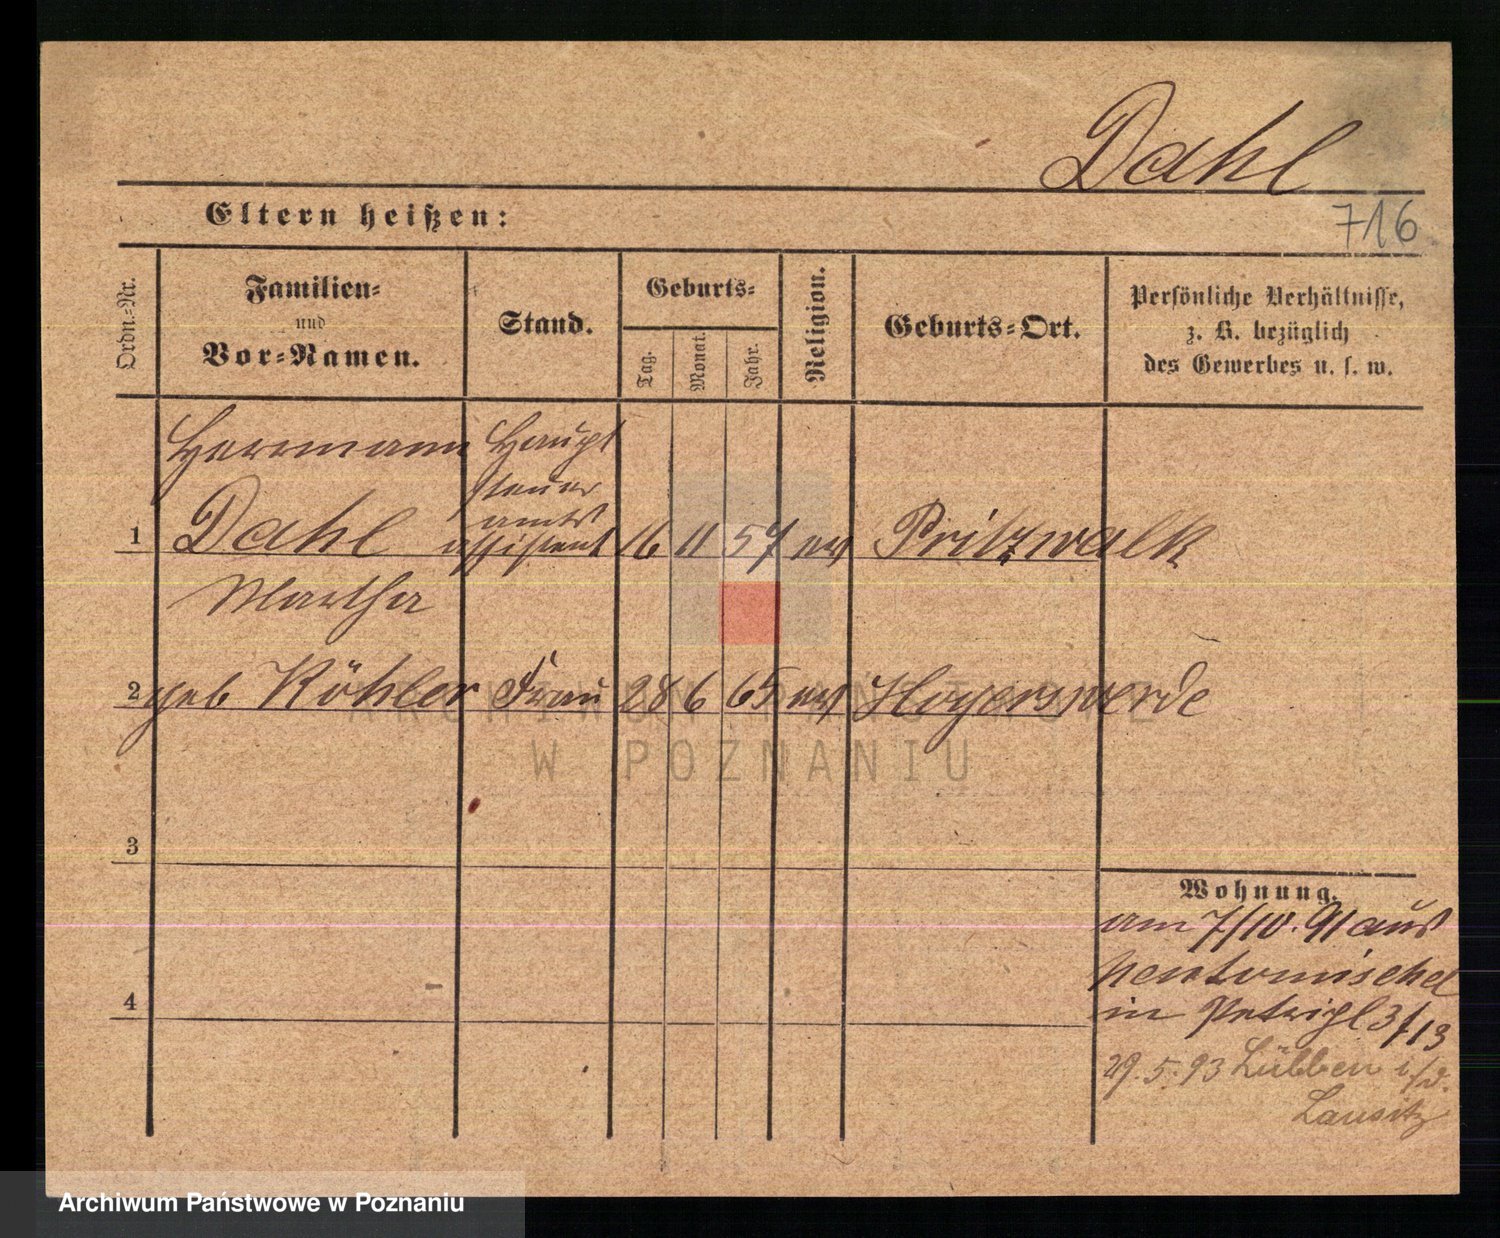 Dahl
Eltern heißen:
716
Ordn.-Nr.
Familien-
und
Vor-Namen.
Stand.
Geburts-
Tag.
Monat.
Jahr.
Religion.
Geburts-Ort.
Persönliche Verhältnisse,
z. B. bezüglich
des Gewerbes u. s. w.
Herrmann
Dahl
Haupt
steuer
amts
assistent
1
16 11 57 ev Pritzwalk
Martha
2 geb Köhler Frau 28 6 65 ev Hoyerswerde
ARCHIWUM PAŃSTWOWE
W POZNANIU
3
4
Wohnung.
am 7/10. 91 aus
Neutomischel
in Petrigl 3/13
29. 5. 93 Lübben i/d.
Lausitz
Archiwum Państwowe w Poznaniu